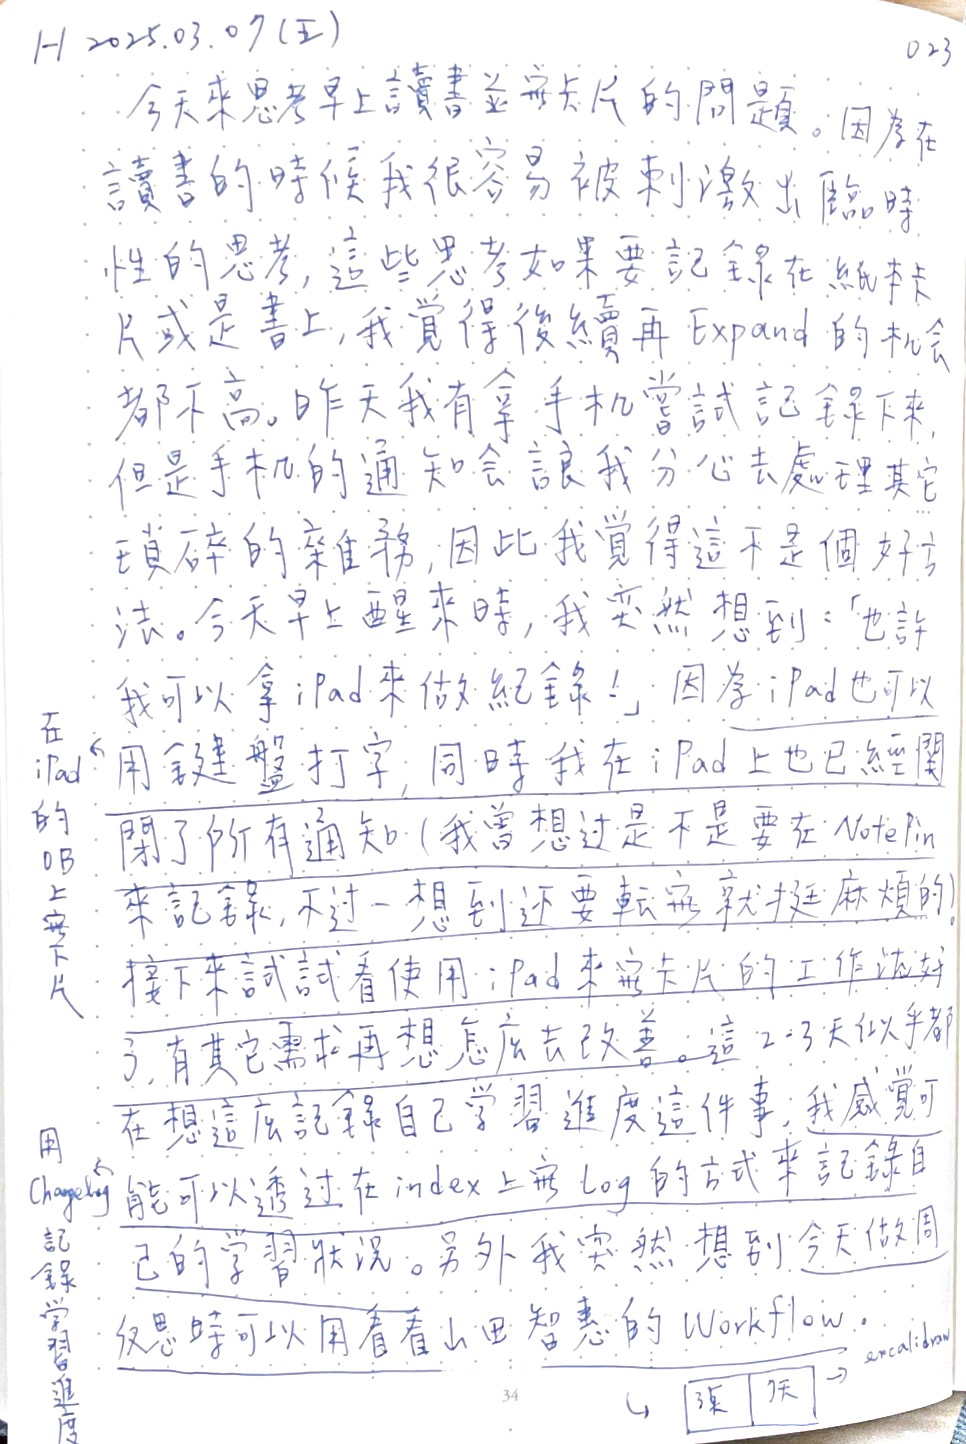 H 2025.03.07(五)
023
今天來思考早上讀書並寫卡片的問題。因為在
讀書的時候我很容易被刺激出臨時
性的思考,這些思考如果要記錄在紙本卡
片或是書上,我覺得後續再Expand的机会
都不高。昨天我有拿手机嘗試記錄下來,
但是手机的通知会讓我分心去處理其它
瑣碎的雜務,因此我覺得這不是個好方
法。今天早上醒來時,我突然想到:「也許
我可以拿iPad來做紀錄!」因為iPad也可以
用鍵盤打字,同時我在iPad上也已經關
閉了所有通知(我曾想过是不是要在NotePin
來記錄,不过一想到还要転寫就挺麻煩的)!
接下來試試看使用iPad來寫卡片的工作法好
了,有其它需求再想怎庅去改善。這2-3天似乎都
在想這庅記錄自己学習進度這件事,我感覚可
能可以透过在index上寫Log的方式來記錄自
己的学習狀况。另外我突然想到今天做周
反思時可以用看看山田智恵的Workflow。
在
iPad
的
OB
上
寫
卡
片
用
Changelog
記
錄
学
習
進
度
34
7天
excalidraw